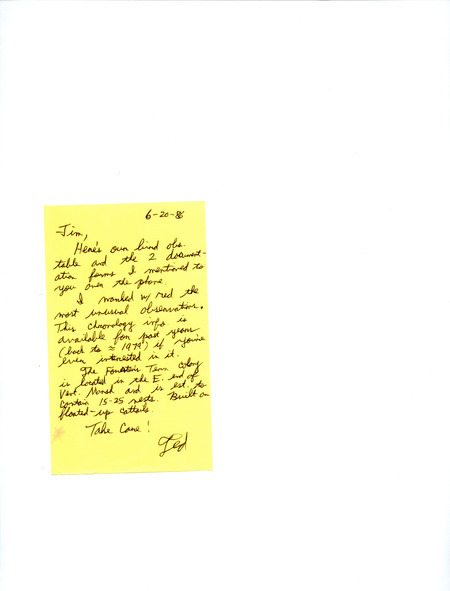 6-20-86
Jim,
Here's our bird obs.
table and the 2 document-
ation forms I mentioned to
you over the phone.
I marked w/ red the
most unusual observations.
This chronology info is
available for past years
(back to ≈ 1979) if you're
ever interested in it.
The Forster's Tern colony
is located in the E. end of
Vert. Marsh and is est. to
contain 15-25 nests. Built on
floated-up cattails.
Take Care!
Ted